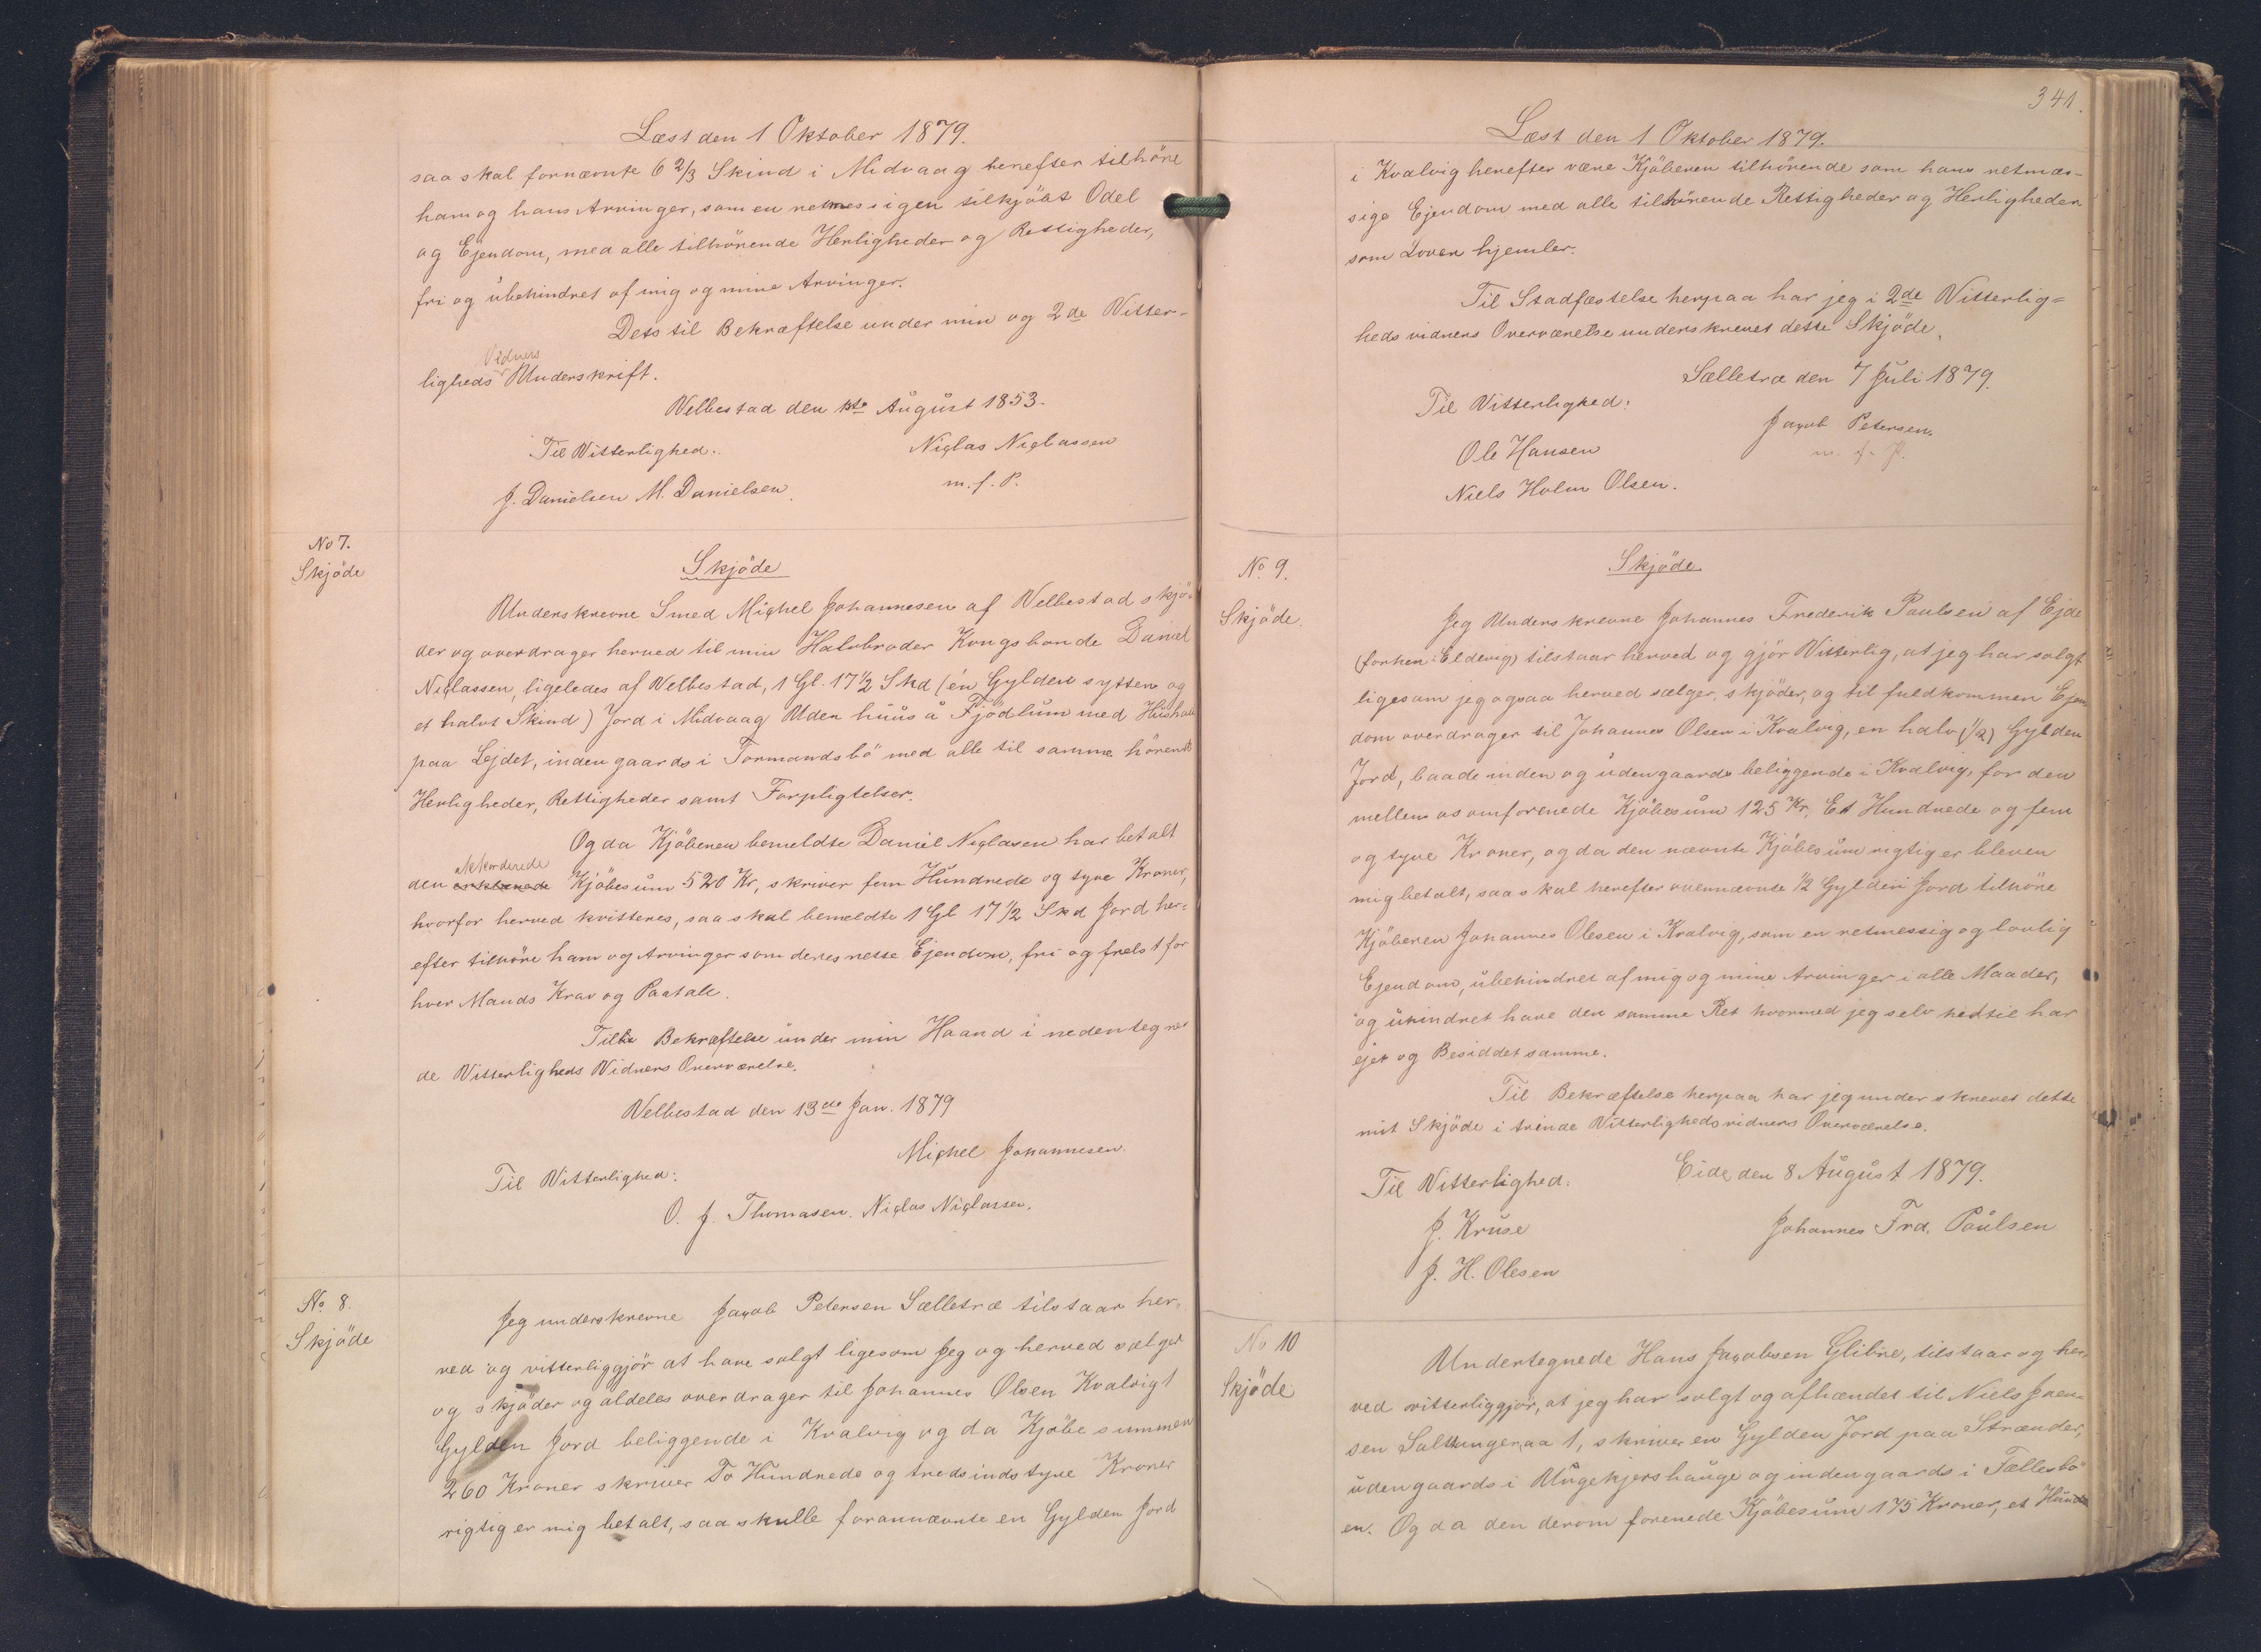 Læst den 1 Oktober 1879.
saa skal fornævnte 6 2/3 Skind i Midvaag herefter tilhöre
ham og hans Arvinger, som en retmessigen tilkjöbt Odel
og Ejendom, med alle tilhörende Herligheder og Rettigheder,
fri og übehindret af mig og mine Arvinger.
Dets til Bekræftelse under min og 2de Vitter-
Vidners
ligheds Underskrift.
Velbestad den 1ste August 1853.
Til Vitterlighed.
Niclas Niclassen
J. Danielsen M. Danielsen.
m. f. P.
No 7.
Skjöde
Skjöde
Underskrevne Smed Michel Johannesen af Velbestad skjö-
der og overdrager herved til min Halvbroder Kongsbonde Daniel
Niclassen, ligeledes af Velbestad, 1 Gl. 17 1/2 Skd (én Gylden sytten og
et halvt Skind) Jord i Midvaag Uden húús å Fjödlum med Húshav
paa Lejdet, inden gaards i Tormandsbö med alle til samme hörende
Herligheder, Rettigheder samt Forpligtelser.
Og da Kjöberen bemeldte Daniel Niclasen har betalt
akkorderede
den Kjöbesum 520 Kr, skriver fem Hundrede og tyve Kroner,
hvorfor herved kvitteres, saa skal bemeldte 1 Gl 17 1/2 Skd Jord her-
efter tilhöre ham og Arvinger som deres rette Ejendom, fri og frelst for
hver Mands Krav og Paatale.
Til Bekræftelse under min Haand i nedentegne-
de Vitterligheds Vidners Overværelse.
Velbestad den 13de Jan. 1879
Michel Johannesen.
Til Vitterlighed:
O. J. Thomasen. Niclas Niclassen.
No. 8.
Skjöde
Jeg underskrevne Jacob Petersen Sælletræ tilstaar her-
ved og vitterliggjör at have solgt ligesom Jeg og herved sælger
og skjöder og aldeles overdrager til Johannes Olsen Kvalvig 1
Gylden Jord beliggende i Kvalvig og da Kjöbesummen
260 Kroner skriver To Hundrede og tredsindstyve Kroner
rigtig er mig betalt, saa skulle forannævnte en Gylden Jord
341.
Læst den 1 Oktober 1879.
i Kvalvig herefter være Kjöberen tilhörende som hans retmæs-
sige Ejendom med alle tilhörende Rettigheder og Herligheder
som Loven hjemler.
Til Stadfæstelse herpaa har jeg i 2de Vitterlig=
heds vidners Overværelse underskrevet dette Skjöde.
Sælletræ den 7 Juli 1879.
Til Vitterlighed:
Jacob Petersen.
Ole Hansen
m. f. P.
Niels Holm Olsen.
No. 9.
Skjöde.
Skjöde.
Jeg Underskrevne Johannes Frederik Paulsen af Ejde
(forhen i Eldevig) tilstaar herved og gjör Vitterlig, at jeg har solgt
ligesom jeg ogsaa herved sælger, skjöder, og til fuldkommen Ejen
dom overdrager til Johannes Olsen i Kvalvig, en halv (1/2) Gylden
Jord, baade inden og üdengaards beliggende i Kvalvig, for den
mellem os omforenede Kjöbesum 125 Kr, Et Hundrede og fem
og tyve Kroner, og da den nævnte Kjöbesum rigtig er bleven
mig betalt, saa skal herefter ovennævnte 1/2 Gylden Jord tilhöre
Kjöberen Johannes Olesen i Kvalvig, som en retmessig og lovlig
Ejendom, übehindret af mig og mine Arvinger i alle Maader,
og ühindret have den samme Ret hvormed jeg selv hidtil har
ejet og Besiddet samme.
Til Bekræftelse herpaa har jeg underskrevet dette
mit Skjöde i tvende Vitterlighedsvidners Overværelse.
Eide den 8 August 1879.
Til Vitterlighed:
J. Kruse
Johannes Frd. Paülsen
J. H. Olesen
No 10
Skjöde
Undertegnede Hans Jacobsen Glibre, tilstaar og her-
ved vitterliggjör, at jeg har solgt og afhændet til Niels Joen-
sen Saltangeraa 1, skriver en Gylden Jord paa Strænder,
üdengaards i Mügekjershauge og indengaards i Fællesbö
en. Og da den derom forenede Kjöbesum 175 Kroner, et Hund